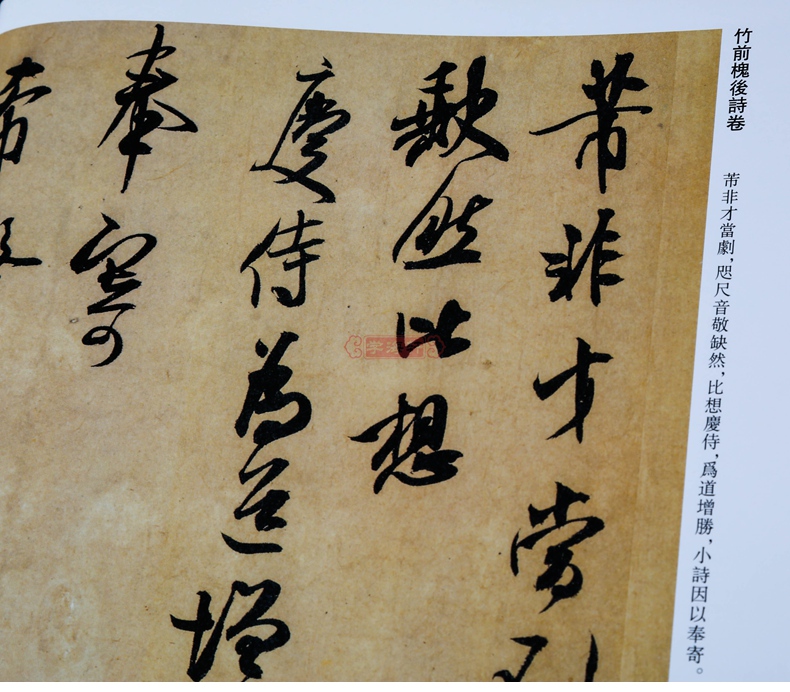 竹前槐後詩卷
芾非才當劇，咫尺音敬缺然，比想慶侍，爲道增勝，小詩因以奉寄。
芾非才當
缺然比想
慶侍為道增
奉寄
芾